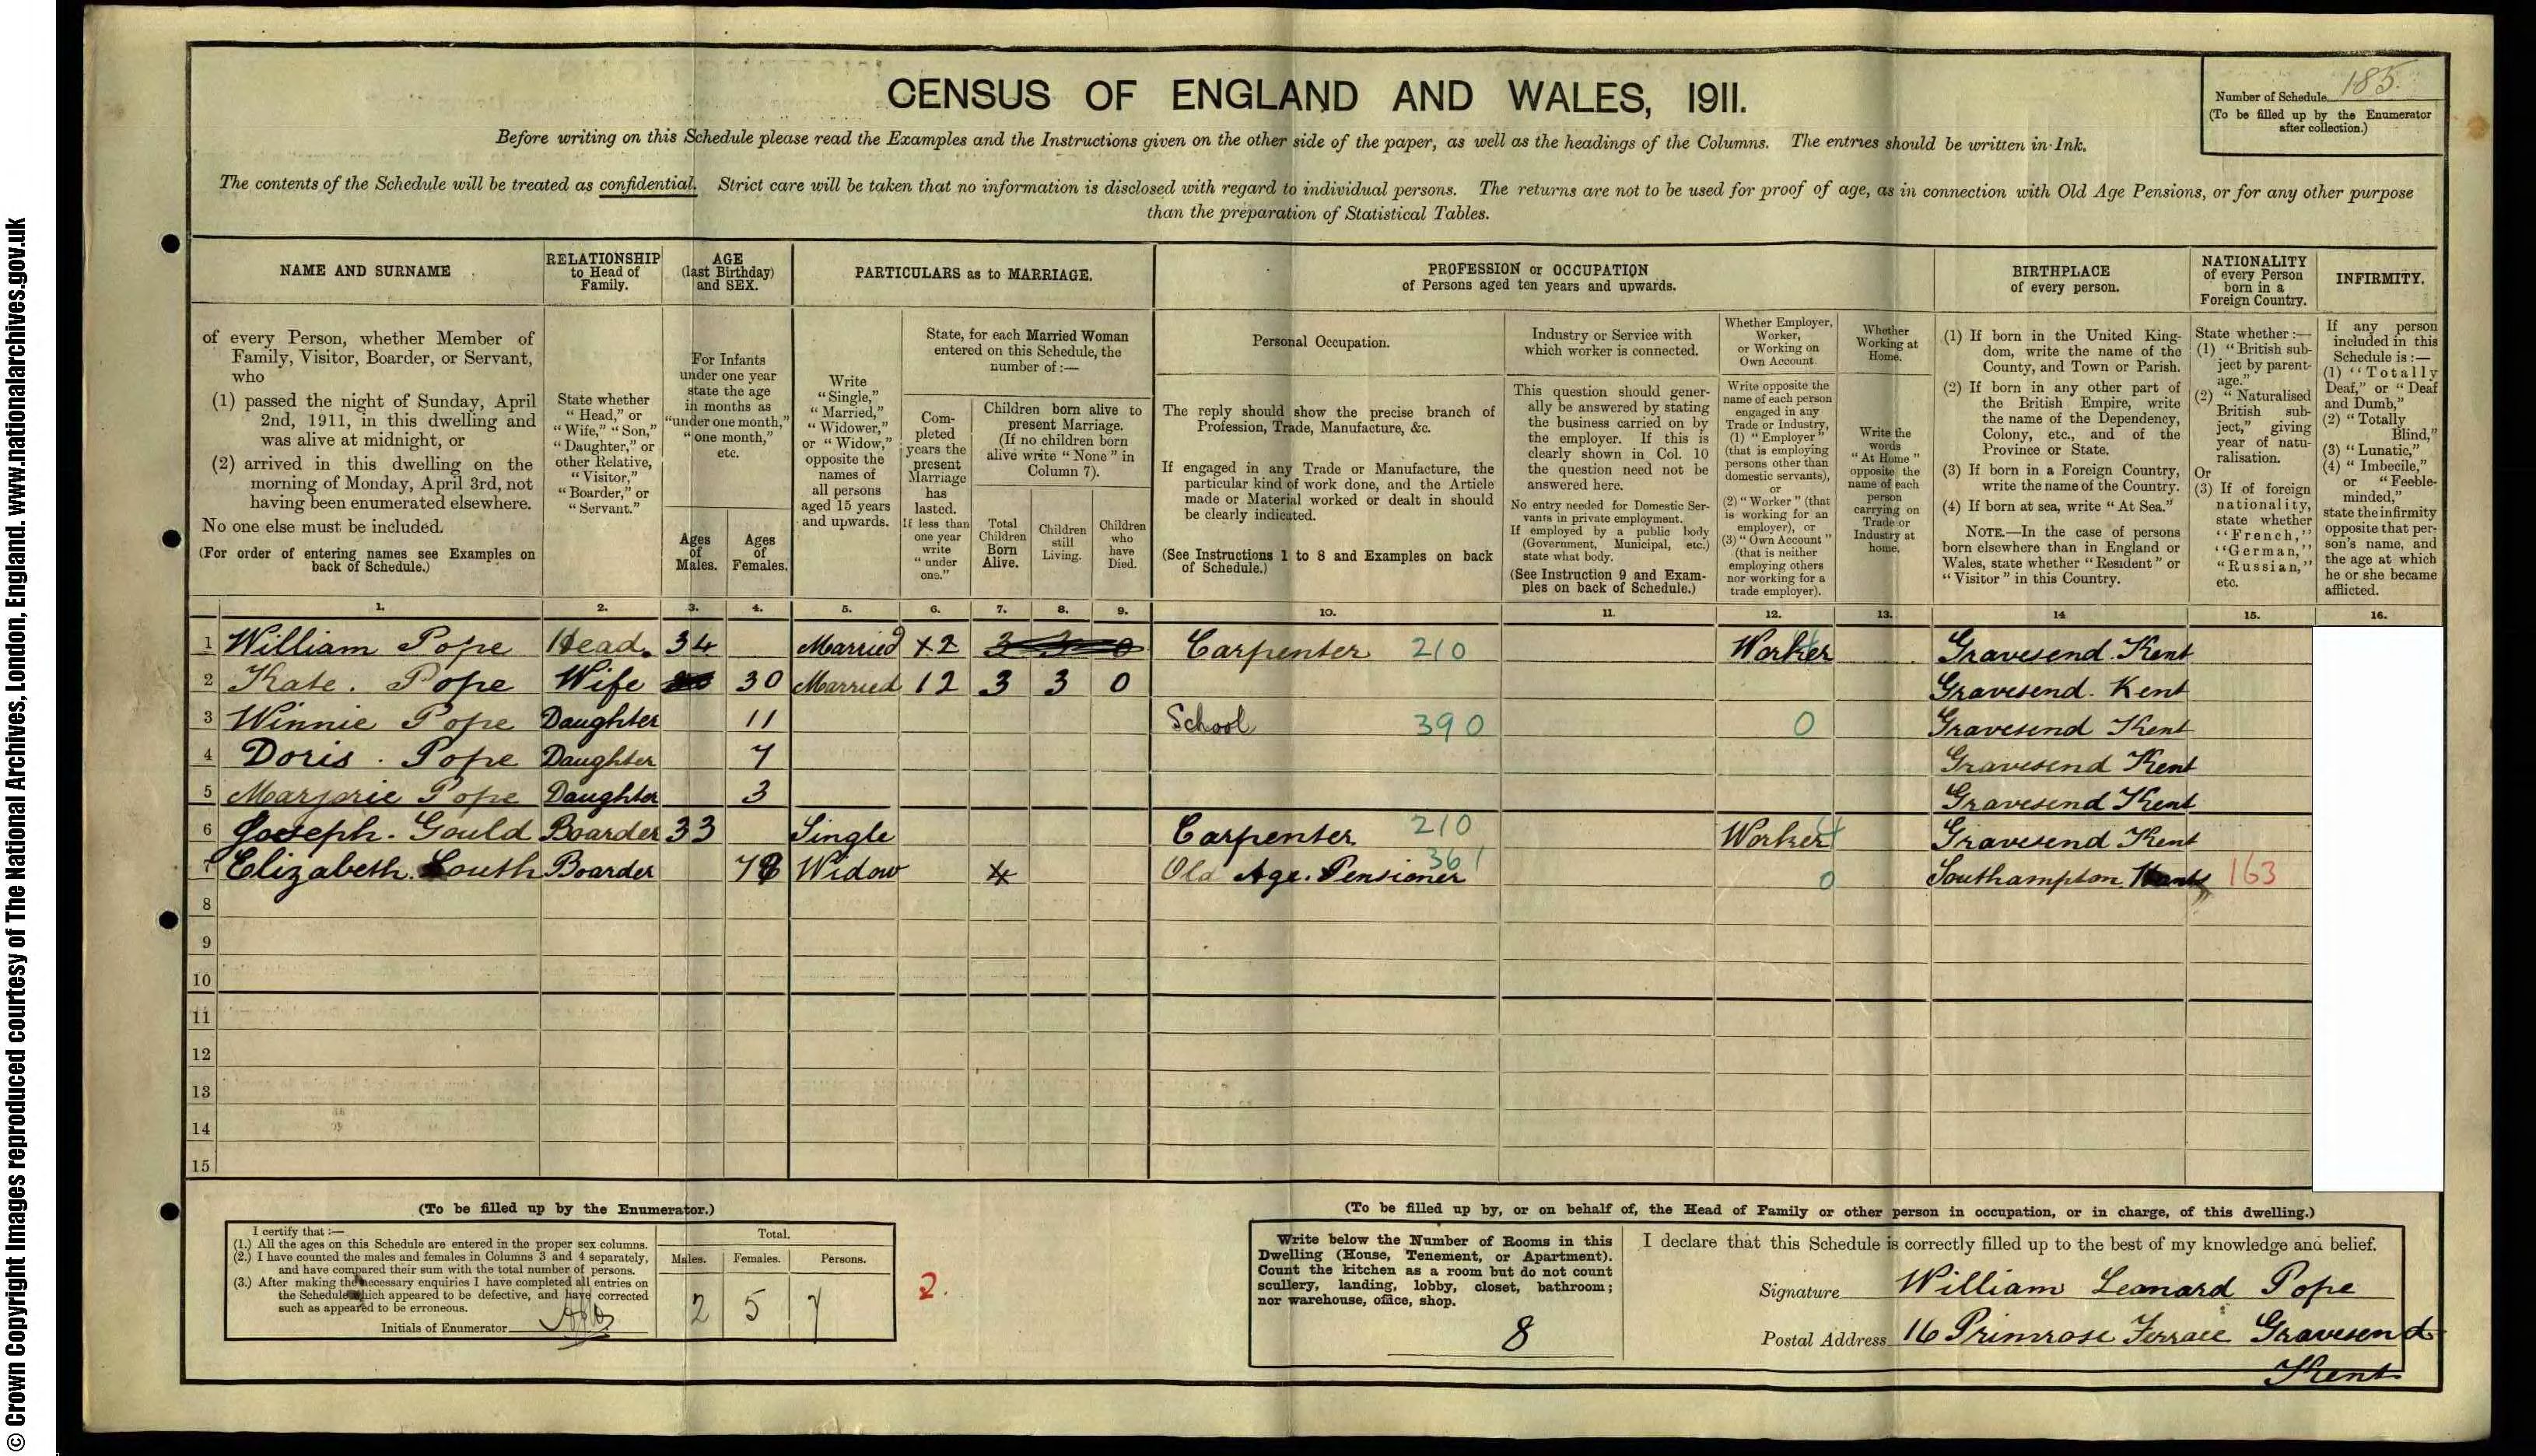 CENSUS OF ENGLAND AND WALES, 1911.
Number of Schedule 185.
(To be filled up by the Enumerator
after collection.)
Before writing on this Schedule please read the Examples and the Instructions given on the other side of the paper, as well as the headings of the Columns. The entries should be written in Ink.
The contents of the Schedule will be treated as confidential. Strict care will be taken that no information is disclosed with regard to individual persons. The returns are not to be used for proof of age, as in connection with Old Age Pensions, or for any other purpose
than the preparation of Statistical Tables.
NAME AND SURNAME
of every Person, whether Member of
Family, Visitor, Boarder, or Servant,
who
(1) passed the night of Sunday, April
2nd, 1911, in this dwelling and
was alive at midnight, or
(2) arrived in this dwelling on the
morning of Monday, April 3rd, not
having been enumerated elsewhere.
No one else must be included.
(For order of entering names see Examples on
back of Schedule.)
RELATIONSHIP
to Head of
Family.
State whether
"Head," or
"Wife," "Son,"
"Daughter," or
other Relative,
"Visitor,"
"Boarder," or
"Servant."
AGE
(last Birthday)
and SEX.
For Infants
under one year
state the age
in months as
"under one month,"
"one month,"
etc.
Ages
of
Males.
Ages
of
Females.
PARTICULARS as to MARRIAGE.
Write
"Single,"
"Married,"
"Widower,"
or "Widow,"
opposite the
names of
all persons
aged 15 years
and upwards.
State, for each Married Woman
entered on this Schedule, the
number of:—
Com-
pleted
years the
present
Marriage
has
lasted.
If less than
one year
write
"under
one."
Children born alive to
present Marriage.
(If no children born
alive write "None" in
Column 7).
Total
Children
Born
Alive.
Children
still
Living.
Children
who
have
Died.
PROFESSION or OCCUPATION
of Persons aged ten years and upwards.
Personal Occupation.
The reply should show the precise branch of
Profession, Trade, Manufacture, &c.
If engaged in any Trade or Manufacture, the
particular kind of work done, and the Article
made or Material worked or dealt in should
be clearly indicated.
(See Instructions 1 to 8 and Examples on back
of Schedule.)
Industry or Service with
which worker is connected.
This question should gener-
ally be answered by stating
the business carried on by
the employer. If this is
clearly shown in Col. 10
the question need not be
answered here.
No entry needed for Domestic Ser-
vants in private employment.
If employed by a public body
(Government, Municipal, etc.)
state what body.
(See Instruction 9 and Exam-
ples on back of Schedule.)
Whether Employer,
Worker,
or Working on
Own Account.
Write opposite the
name of each person
engaged in any
Trade or Industry,
(1) "Employer"
(that is employing
persons other than
domestic servants),
or
(2) "Worker" (that
is working for an
employer), or
(3) "Own Account"
(that is neither
employing others
nor working for a
trade employer).
Whether
Working at
Home.
Write the
words
"At Home"
opposite the
name of each
person
carrying on
Trade or
Industry at
home.
BIRTHPLACE
of every person.
(1) If born in the United King-
dom, write the name of the
County, and Town or Parish.
(2) If born in any other part of
the British Empire, write
the name of the Dependency,
Colony, etc., and of the
Province or State.
(3) If born in a Foreign Country,
write the name of the Country.
(4) If born at sea, write "At Sea."
NOTE.—In the case of persons
born elsewhere than in England or
Wales, state whether "Resident" or
"Visitor" in this Country.
NATIONALITY
of every Person
born in a
Foreign Country.
State whether:—
(1) "British sub-
ject by parent-
age."
(2) "Naturalised
British sub-
ject," giving
year of natu-
ralisation.
Or
(3) If of foreign
nationality,
state whether
"French,"
"German,"
"Russian,"
etc.
INFIRMITY.
If any person
included in this
Schedule is:—
(1) "Totally
Deaf," or "Deaf
and Dumb,"
(2) "Totally
Blind,"
(3) "Lunatic,"
(4) "Imbecile,"
or "Feeble-
minded,"
state the infirmity
opposite that per-
son's name, and
the age at which
he or she became
afflicted.
1. 2. 3. 4. 5. 6. 7. 8. 9. 10. 11. 12. 13. 14 15. 16.
1 William Pope Head. 34 Married 3 3 0 Carpenter 210 Worker Gravesend Kent
2 Kate. Pope Wife 30 Married 12 3 3 0 Gravesend. Kent
3 Winnie Pope Daughter 11 School 390 0 Gravesend Kent
4 Doris. Pope Daughter 7 Gravesend Kent
5 Marjorie Pope Daughter 3 Gravesend Kent
6 Joseph. Gould Boarder 33 Single Carpenter 210 Worker Gravesend Kent
7 Elizabeth South Boarder Widow Old Age. Pensioner 361 0 Southampton Hants 163
8
9
10
11
12
13
14
15
(To be filled up by the Enumerator.)
I certify that:—
(1.) All the ages on this Schedule are entered in the proper sex columns.
(2.) I have counted the males and females in Columns 3 and 4 separately,
and have compared their sum with the total number of persons.
(3.) After making the necessary enquiries I have completed all entries on
the Schedule which appeared to be defective, and have corrected
such as appeared to be erroneous.
Initials of Enumerator
Total.
Males. Females. Persons.
2 5 7
2.
(To be filled up by, or on behalf of, the Head of Family or other person in occupation, or in charge, of this dwelling.)
Write below the Number of Rooms in this
Dwelling (House, Tenement, or Apartment).
Count the kitchen as a room but do not count
scullery, landing, lobby, closet, bathroom;
nor warehouse, office, shop.
8
I declare that this Schedule is correctly filled up to the best of my knowledge and belief.
Signature William Leonard Pope
Postal Address 16 Primrose Terrace Gravesend
Kent
© Crown Copyright Images reproduced courtesy of The National Archives, London, England. www.nationalarchives.gov.uk